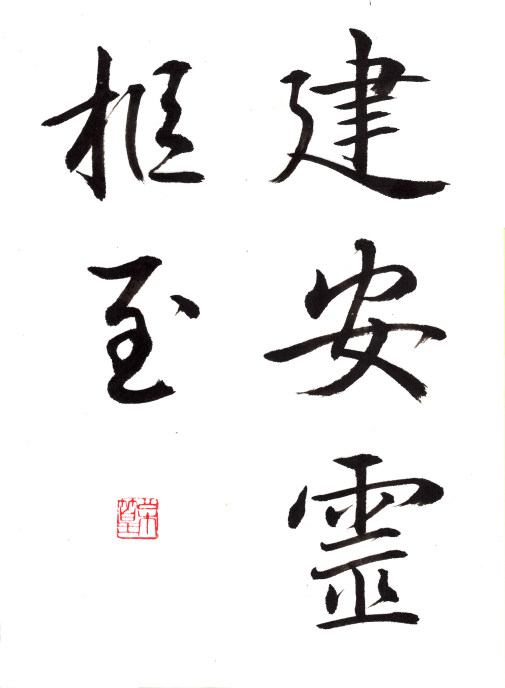 建安靈
柩至